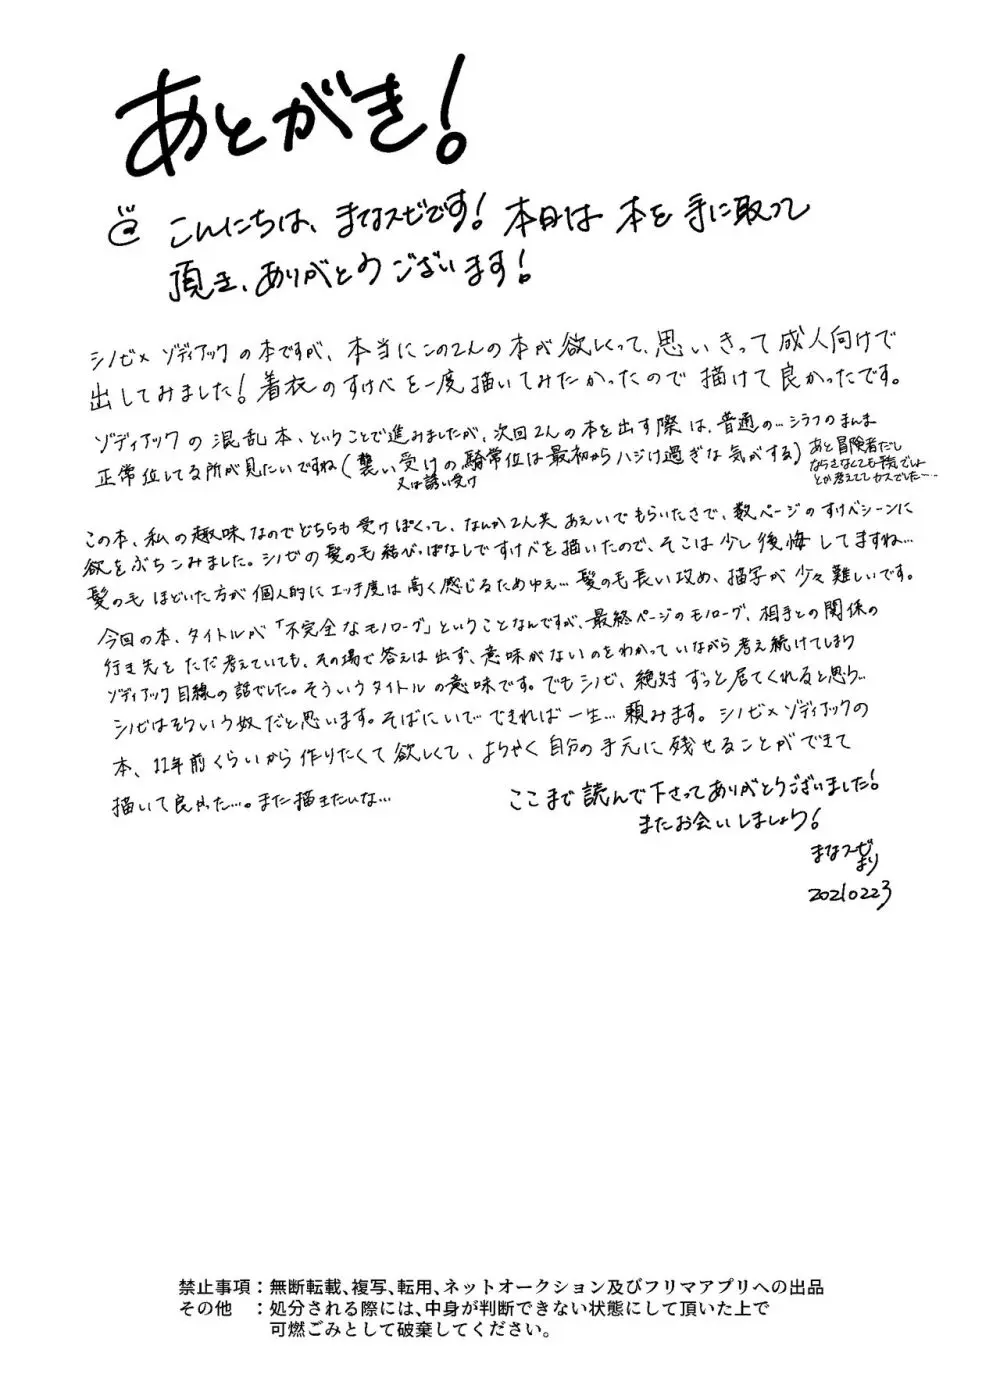 あとがき！
こんにちは、まなスゼです！本日は本を手に取って
頂き、ありがとうございます！
シノゼ×ゾディアックの本ですが、本当にこの2人の本が欲しくって、思いきって成人向けで
出してみました！着衣のすけべを一度描いてみたかったので描けて良かったです。
ゾディアックの混乱本、ということで進みましたが、次回2人の本を出す際は、普通の…シラフのまんま
正常位してる所が見たいですね（襲い受けの騎常位は最初からハジけ過ぎな気がする）
又は誘い受け
あと冒険者だし
ならさなくても平気でしょ
とか考えててカスでした…
この本、私の趣味なのでどちらも受けぽくって、なんか2人共あえいでもらいたさで、数ページのすけべシーンに
欲をぶちこみました。シノゼの髪の毛結びっぱなしですけべを描いたので、そこは少し後悔してますね…
髪の毛ほどいた方が個人的にエッチ度は高く感じるためゆえ…髪の毛長い攻め、描写が少々難しいです。
今回の本、タイトルが「不完全なモノローグ」ということなんですが、最終ページのモノローグ、相手との関係の
行き先をただ考えていても、その場で答えは出ず、意味がないのをわかっていながら考え続けてしまう
ゾディアック目線の話でした。そういうタイトルの意味です。でもシノゼ、絶対ずっと居てくれると思う…
シノゼはそういう奴だと思います。そばにいて…できれば一生…頼みます。シノゼ×ゾディアックの
本、11年前くらいから作りたくて欲しくて、ようやく自分の手元に残せることができて
描いて良かった…。また描きたいな…
ここまで読んで下さってありがとうございました！
またお会いしましょう！
まなスゼ
より
20210223
禁止事項：無断転載、複写、転用、ネットオークション及びフリマアプリへの出品
その他　：処分される際には、中身が判断できない状態にして頂いた上で
可燃ごみとして破棄してください。